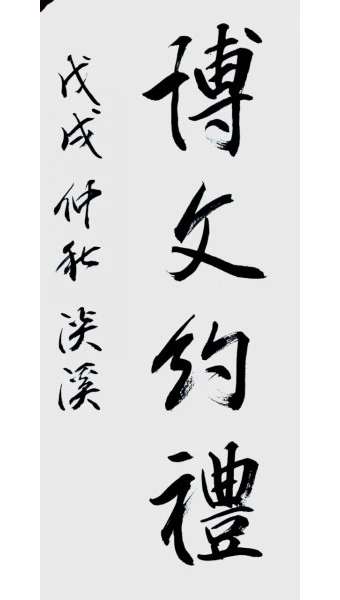 博文约禮
戊戌仲秋淡溪